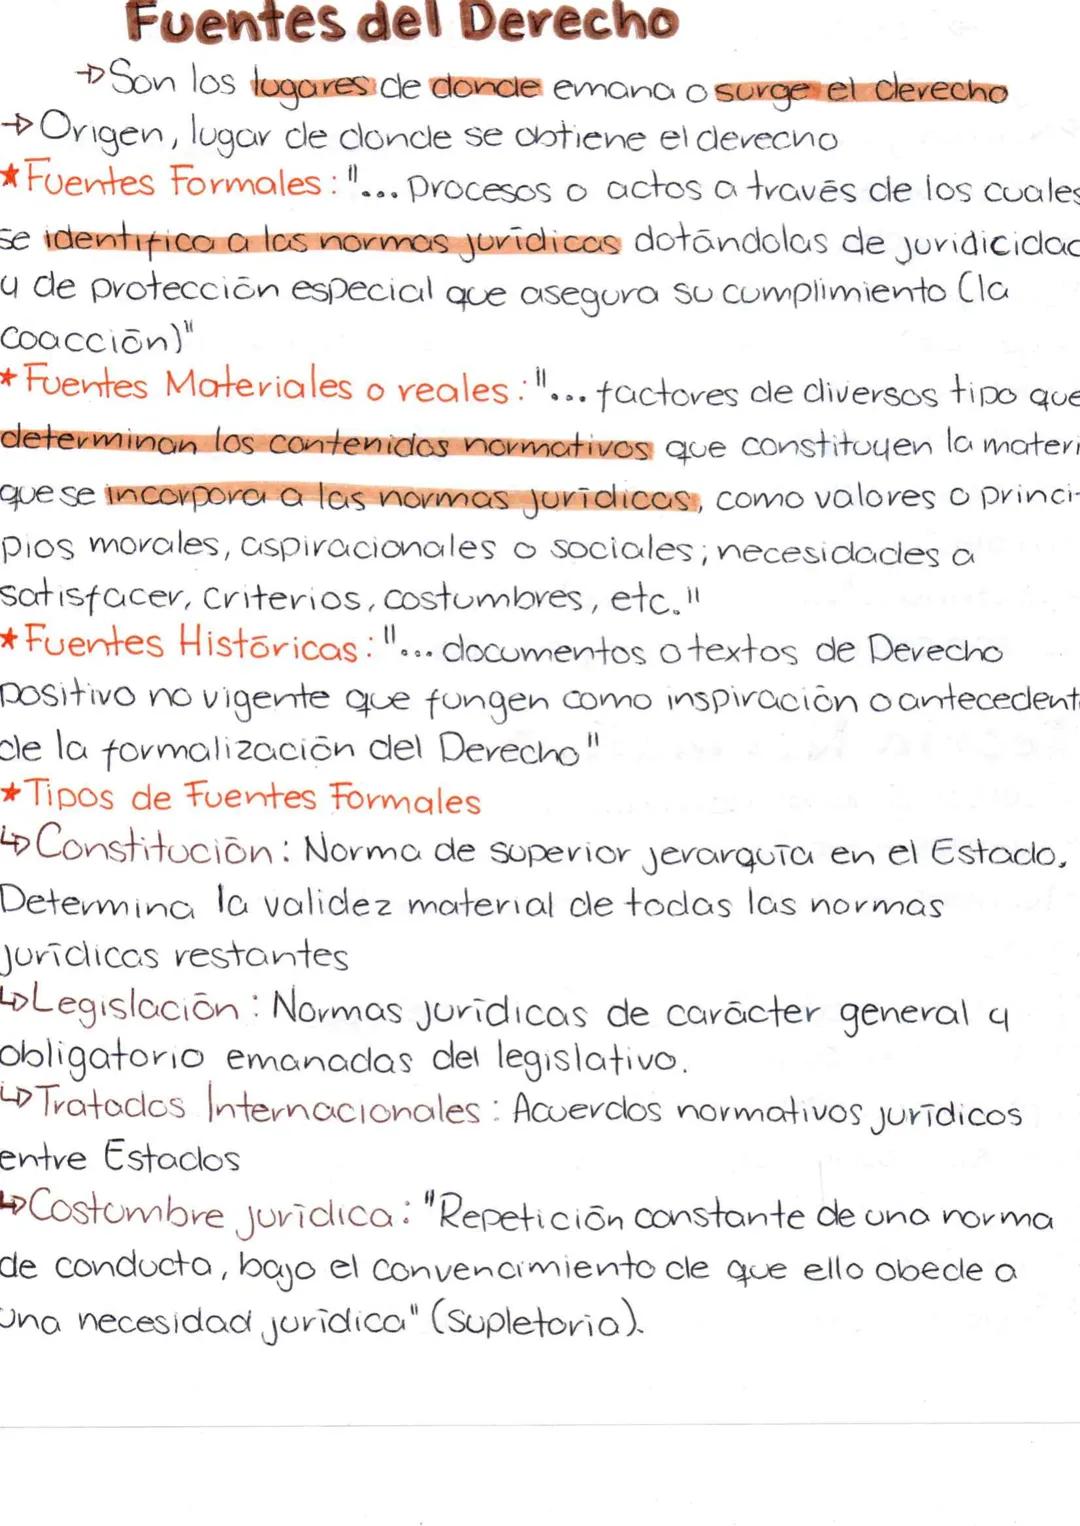 Fuentes del Derecho
→Son los lugares de donde emana o surge el derecho
→Origen, lugar de donde se obtiene el derecho
*Fuentes Formales: "... procesos o actos a través de los cuales
se identifica a las normas jurídicas dotándolas de juridicidad
y de protección especial que asegura su cumplimiento (la
coacción)"
*Fuentes Materiales o reales: "... factores de diversos tipo que
determinan los contenidos normativos que constituyen la materi
que se incorpora a las normas jurídicas, como valores o princi-
pios morales, aspiracionales o sociales; necesidades a
satisfacer, criterios, costumbres, etc."
*Fuentes Históricas: "... documentos o textos de Derecho
positivo no vigente que fungen como inspiración o antecedent
de la formalización del Derecho"
*Tipos de Fuentes Formales
↳Constitución: Norma de superior jerarquía en el Estado.
Determina la validez material de todas las normas
jurídicas restantes
↳Legislación: Normas jurídicas de carácter general y
obligatorio emanadas del legislativo.
↳Tratados Internacionales: Acuerdos normativos jurídicos
entre Estados
↳Costumbre jurídica: "Repetición constante de una norma
de conducta, bajo el convencimiento de que ello obede a
una necesidad jurídica" (supletoria).